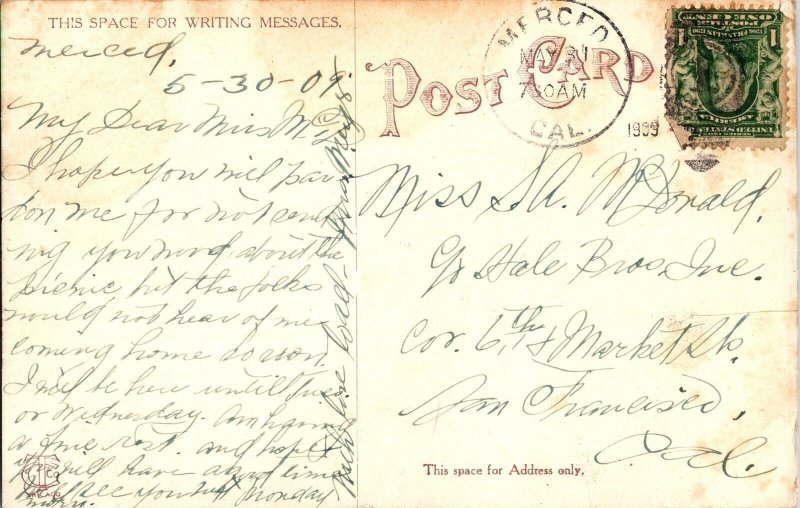 THIS SPACE FOR WRITING MESSAGES.
Merced,
5-30-09
My Dear Miss Mc
I hope you will par
don me for not send
ing you word about the
picnic but the folks
would not hear of me
coming home so soon.
I will be here until Tues
or Wednesday. Am having
a fine rest. and hope
you will have a good time
see you next Monday
with love
POST CARD
MERCED
MAY 31
7 30 AM
CAL.
1909
POSTAGE
ONE CENT
1 1
FRANKLIN
UNITED STATES
Miss S. A. McDonald,
c/o Hale Bros. Inc.
Cor. 6th & Market Sts.
San Francisco,
Cal.
This space for Address only.